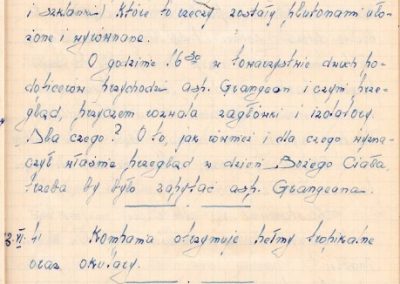 i szklanki) które to rzeczy zostały plutonami uło-
żone i wyrównane.
O godzinie 16³⁰ w towarzystwie dwóch po-
doficerów przychodzi asp. Grangean i czyni prze-
gląd, przyczem
zagłówki i izolatory.
Dla czego? O to, jak również i dla czego wyzna-
czył właśnie przegląd w dzień Bożego Ciała,
trzeba by było zapytać asp. Grangeana.
VI. 41 Kompania otrzymuje hełmy tropikalne
oraz okulary.